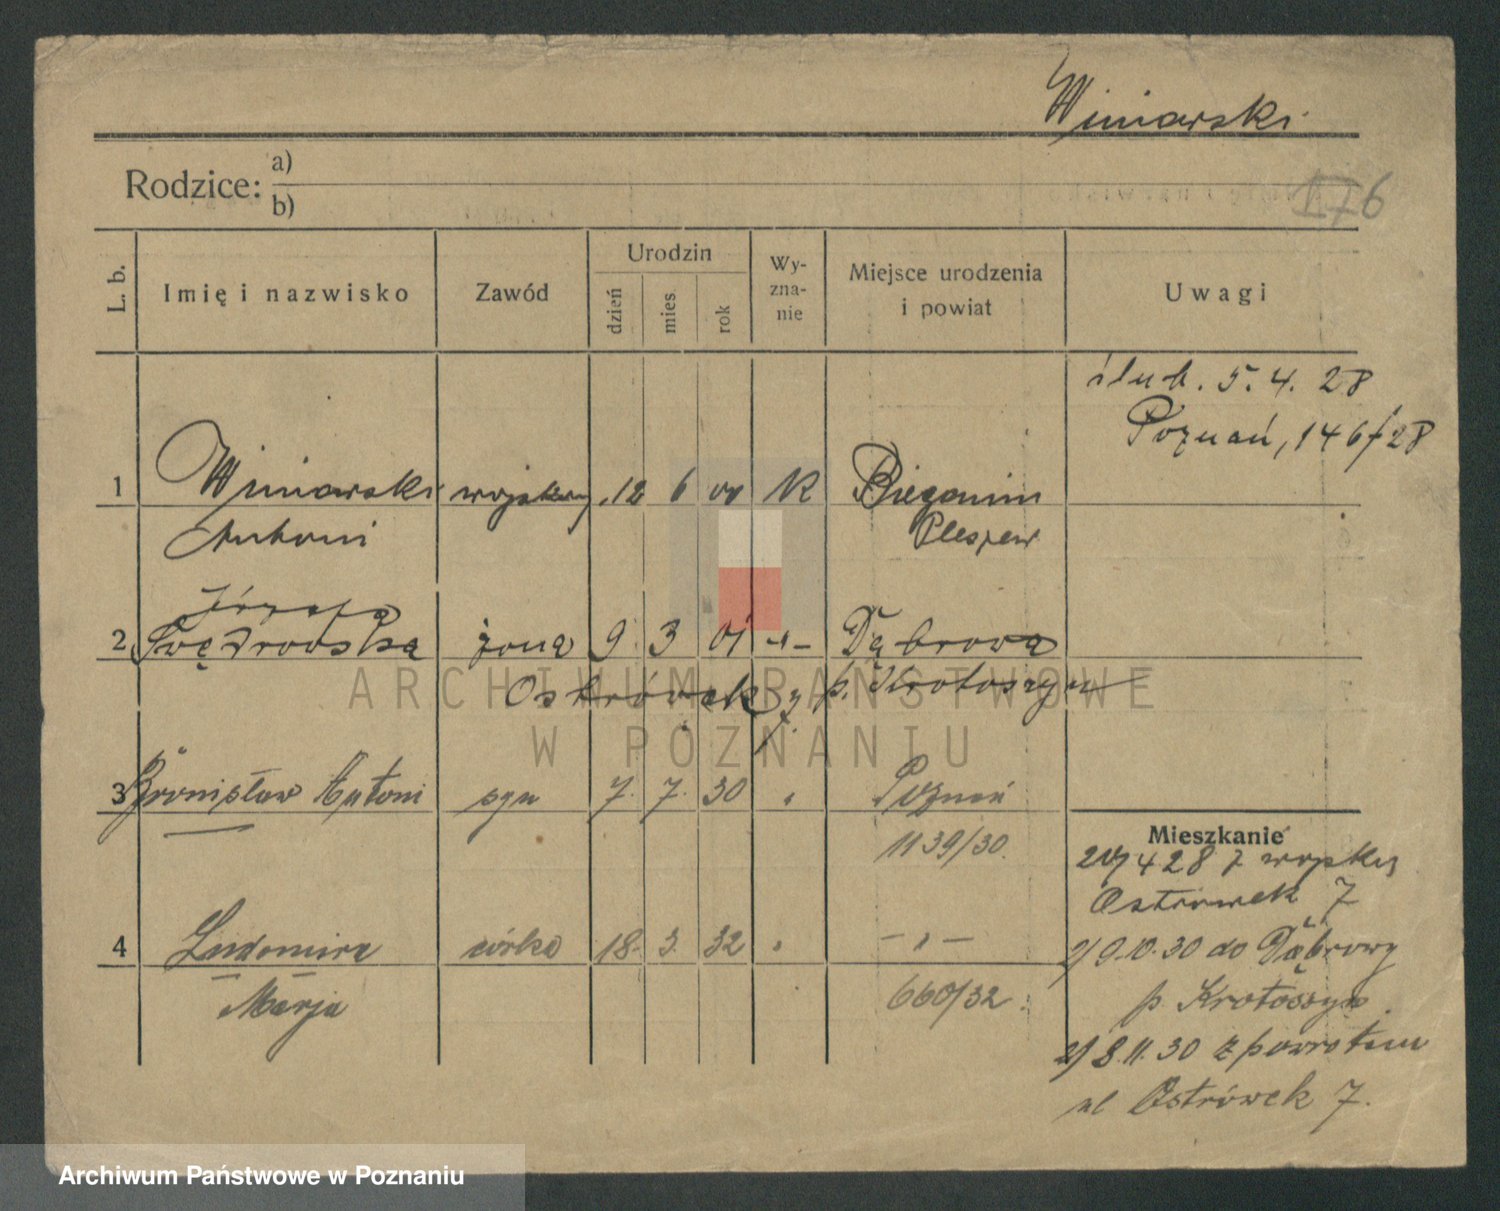 Winiarski
Rodzice: a)
b)
6
L. b.
Imię i nazwisko
Zawód
Urodzin
dzień
mies
rok
Wy-
zna-
nie
Miejsce urodzenia
i powiat
Uwagi
ślub. 5. 4. 28
Poznań, 146/28
1 Winiarski wojskowy 12 6 00 K Bieganin
Antoni Pleszew
Józefa
2 żona 9 3 01 -"- Dąbrowa
Ostrówek 7 p. Krotoszyn
3 Bronisław Antoni syn 7. 7. 30 " Poznań
1139/30.
Mieszkanie
428 z wojska
Ostrówek 7
4 Ludomira córka 18. 3. 32 " - " -
Marja 660/32.
9.10.30 do Dąbrowy
p. Krotoszyn.
8.11.30 z powrotem
ul Ostrówek 7.
ARCHIWUM PAŃSTWOWE
W POZNANIU
Archiwum Państwowe w Poznaniu